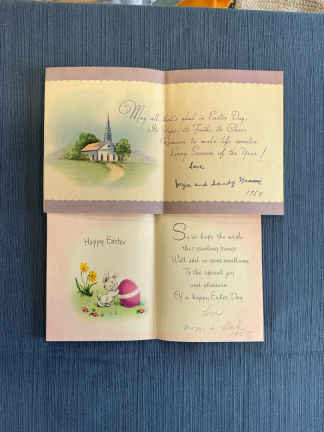 May all that's glad in Easter Day,
Its Hope, its Faith, its Cheer
Remain to make life sweeter
Every Season of the Year!
Love
and Sandy
Happy Easter
Sure hope the wish
this greeting bears
Will add in some small way
To the special joy
and pleasure
Of a happy Easter Day
Love